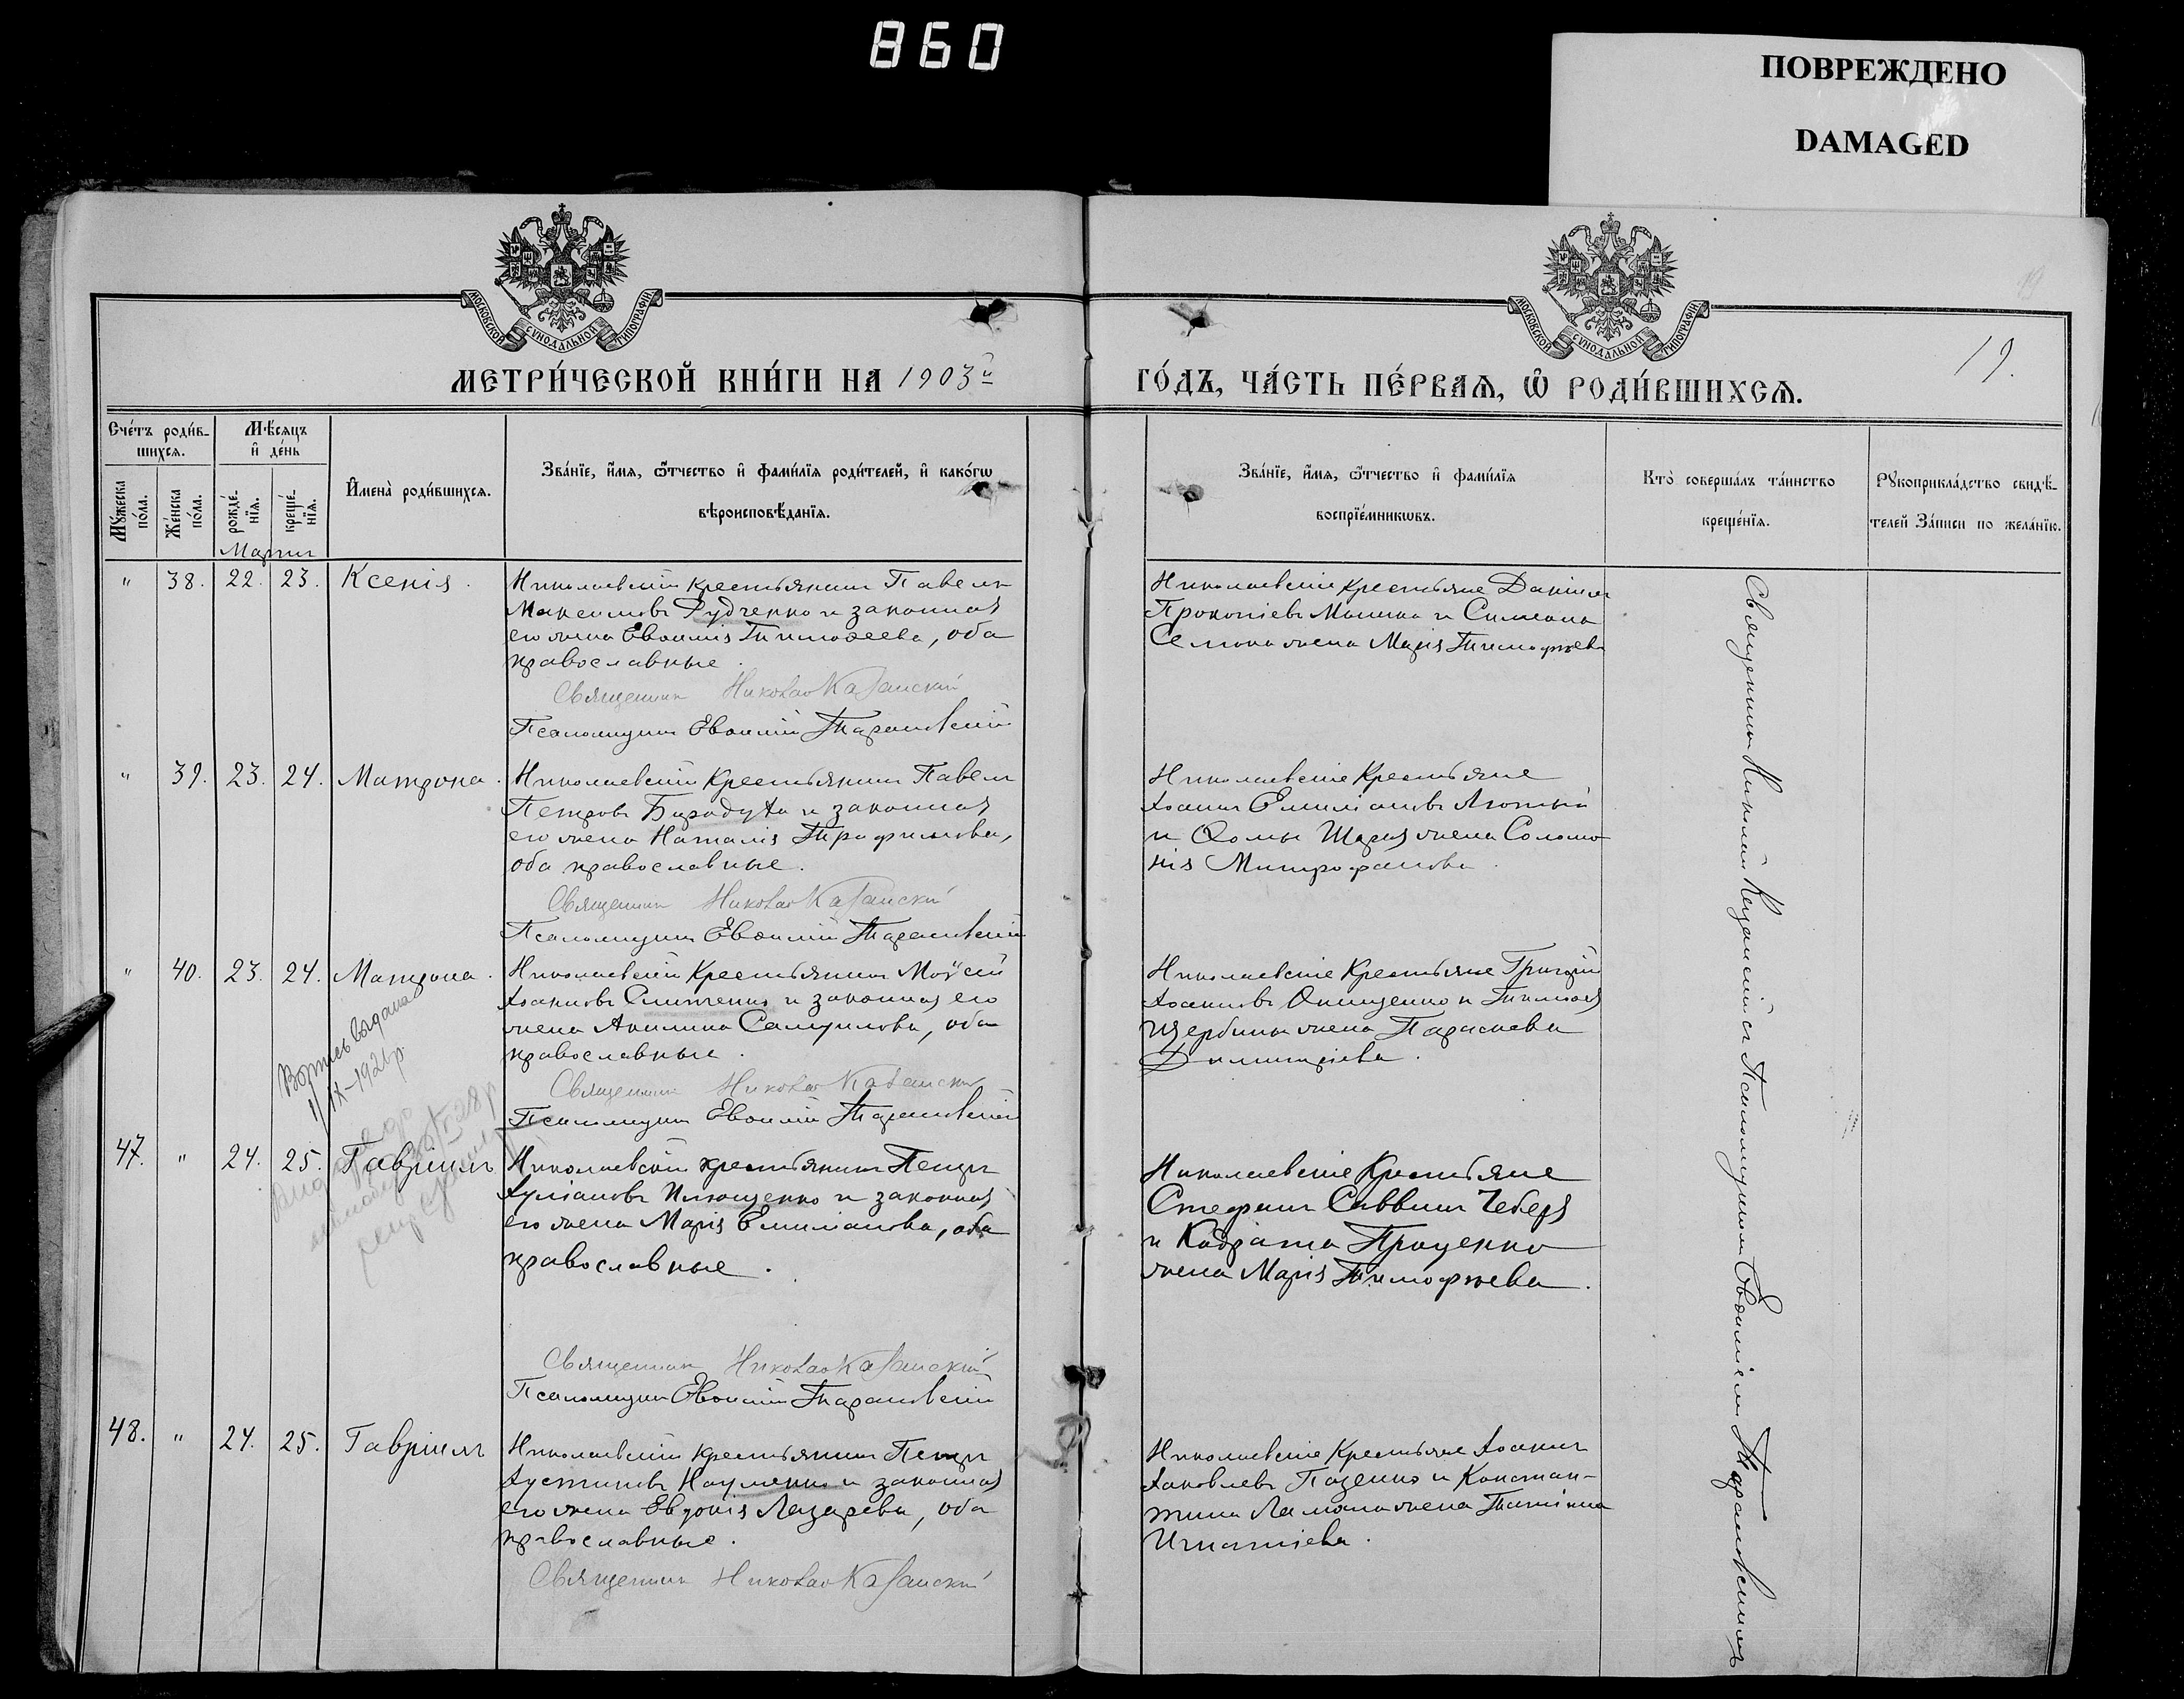 860
ПОВРЕЖДЕНО
DAMAGED
МОСКОВСКОЙ СѴНОДАЛЬНОЙ ТИПОГРАФІИ
МОСКОВСКОЙ СѴНОДАЛЬНОЙ ТИПОГРАФІИ
19.
МЕТРИ́ЧЕСКОЙ КНИ́ГИ НА 1903й
ГО́ДЪ, ЧА́СТЬ ПЕ́РВАЯ, Ѽ РОДИ́ВШИХСЯ.
Сче́тъ роди́в-
шихся.
Мѣ́сяцъ
и҆ де́нь
Му́жеска по́ла.
Же́нска по́ла.
рожде́нїя.
креще́нїя.
И҆мена̀ роди́вшихся.
Зва́нїе, и҆́мя, ѻ҆́тчество и҆ фами́лїя роди́телей, и҆ како́гѡ
вѣроисповѣ́данїя.
Зва́нїе, и҆́мя, ѻ҆́тчество и҆ фами́лїя
воспрїе́мникѡвъ.
Кто̀ соверша́лъ та́инство
креще́нїя.
Рꙋкоприкла́дство свидѣ́-
телей За́писи по жела́нїю.
Мартъ
" 38. 22. 23. Ксенія.
Николаевскій крестьянинъ Павелъ
Максимовъ Рудченко и законная
его жена Евѳимія Тимоѳеева, оба
православные.
Священникъ Николай Казанскій
Псаломщикъ Евѳимій Тарановскій
Николаевскіе крестьяне Даніилъ
Прокопіевъ и Симеона
жена Марія Тимофѣева
" 39. 23. 24. Матрона.
Николаевскій крестьянинъ Павелъ
Петровъ и законная
его жена Наталія Трофимова,
оба православные.
Священникъ Николай Казанскій
Псаломщикъ Евѳимій Тарановскій
Николаевскіе крестьяне
Іоаннъ Емиліановъ
и Ѳомы жена Соломо-
нія Митрофанова.
" 40. 23. 24. Матрона.
Николаевскій крестьянинъ Моѵсей
Іоанновъ и законная его
жена Акилина Самуилова, оба
православные.
Священникъ Николай Казанскій
Псаломщикъ Евѳимій Тарановскій
Николаевскіе крестьяне Григорій
Іоанновъ Онищенко и Тимоѳея
Щербины жена Параскева
Димитріева.
47. " 24. 25. Гавріилъ
Николаевскій крестьянинъ Петръ
Іуліановъ и законная
его жена Марія Емиліанова, оба
православные.
Священникъ Николай Казанскій
Псаломщикъ Евѳимій Тарановскій
Николаевскіе крестьяне
Стефанъ Саввинъ Чеберя
и Кодрата Проценко
жена Марія Тимофѣева.
48. " 24. 25. Гавріилъ
Николаевскій крестьянинъ Петръ
Іустиновъ Науменко и законная
его жена Евдокія Лазарева, оба
православные.
Священникъ Николай Казанскій
Николаевскіе крестьяне Іоаннъ
Іаковлевъ и Констан-
тина жена Татіана
Игнатіева.
Священникъ Николай Казанскій съ Псаломщикомъ Евѳиміемъ Тарановскимъ